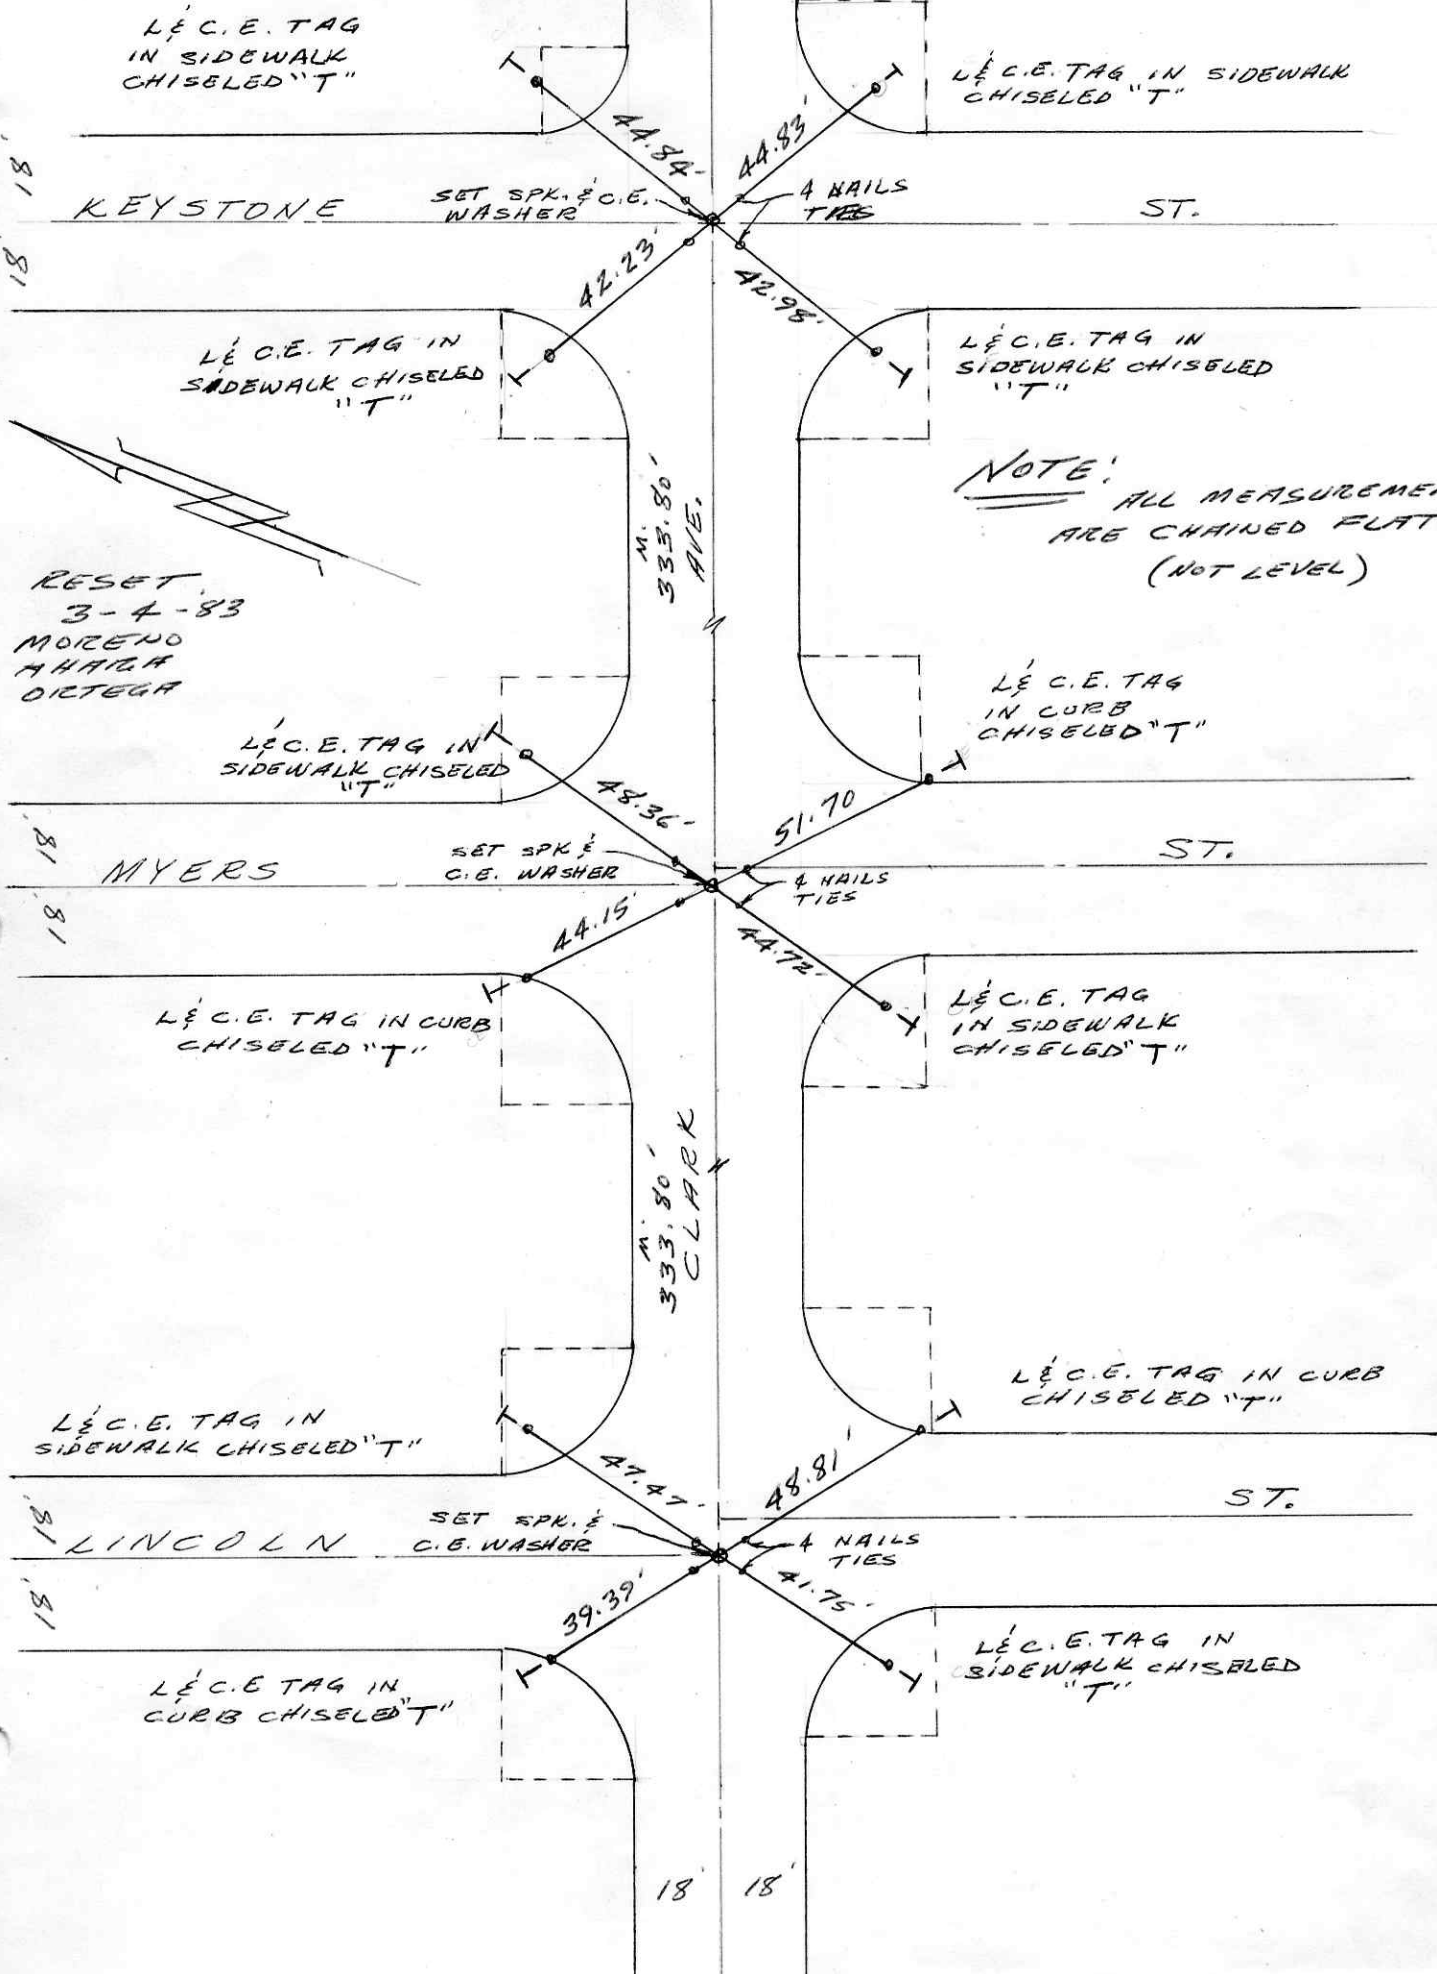 L & C.E. TAG
IN SIDEWALK
CHISELED "T"
T
T
L & C.E. TAG IN SIDEWALK
CHISELED "T"
44.84'
44.83'
18'
KEYSTONE
SET SPK. & C.E.
WASHER
4 NAILS
TIES
ST.
18'
42.23'
42.98'
L & C.E. TAG IN
SIDEWALK CHISELED
"T"
T
T
L & C.E. TAG IN
SIDEWALK CHISELED
"T"
M.
333.80'
AVE.
NOTE:
ALL MEASUREME
ARE CHAINED FLAT
(NOT LEVEL)
RESET
3-4-83
MORENO
AHARA
ORTEGA
L & C.E. TAG IN
SIDEWALK CHISELED
"T"
T
T
L & C.E. TAG
IN CURB
CHISELED "T"
48.36'
51.70
18'
MYERS
SET SPK &
C.E. WASHER
4 NAILS
TIES
ST.
18'
44.15'
44.72'
L & C.E. TAG IN CURB
CHISELED "T"
T
T
L & C.E. TAG
IN SIDEWALK
CHISELED "T"
M.
333.80'
CLARK
L & C.E. TAG IN
SIDEWALK CHISELED "T"
T
T
L & C.E. TAG IN CURB
CHISELED "T"
47.47'
48.81'
18'
LINCOLN
SET SPK. &
C.E. WASHER
4 NAILS
TIES
ST.
18'
39.39'
41.75'
L & C.E TAG IN
CURB CHISELED "T"
T
T
L & C.E. TAG IN
SIDEWALK CHISELED
"T"
18'
18'